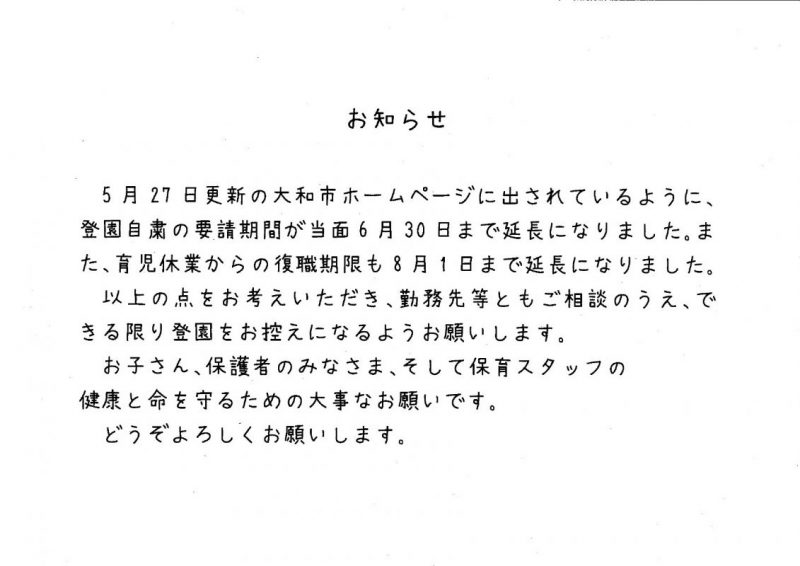 お知らせ
５月27日更新の大和市ホームページに出されているように、
登園自粛の要請期間が当面６月30日まで延長になりました。ま
た、育児休業からの復職期限も８月１日まで延長になりました。
以上の点をお考えいただき、勤務先等ともご相談のうえ、で
きる限り登園をお控えになるようお願いします。
お子さん、保護者のみなさま、そして保育スタッフの
健康と命を守るための大事なお願いです。
どうぞよろしくお願いします。